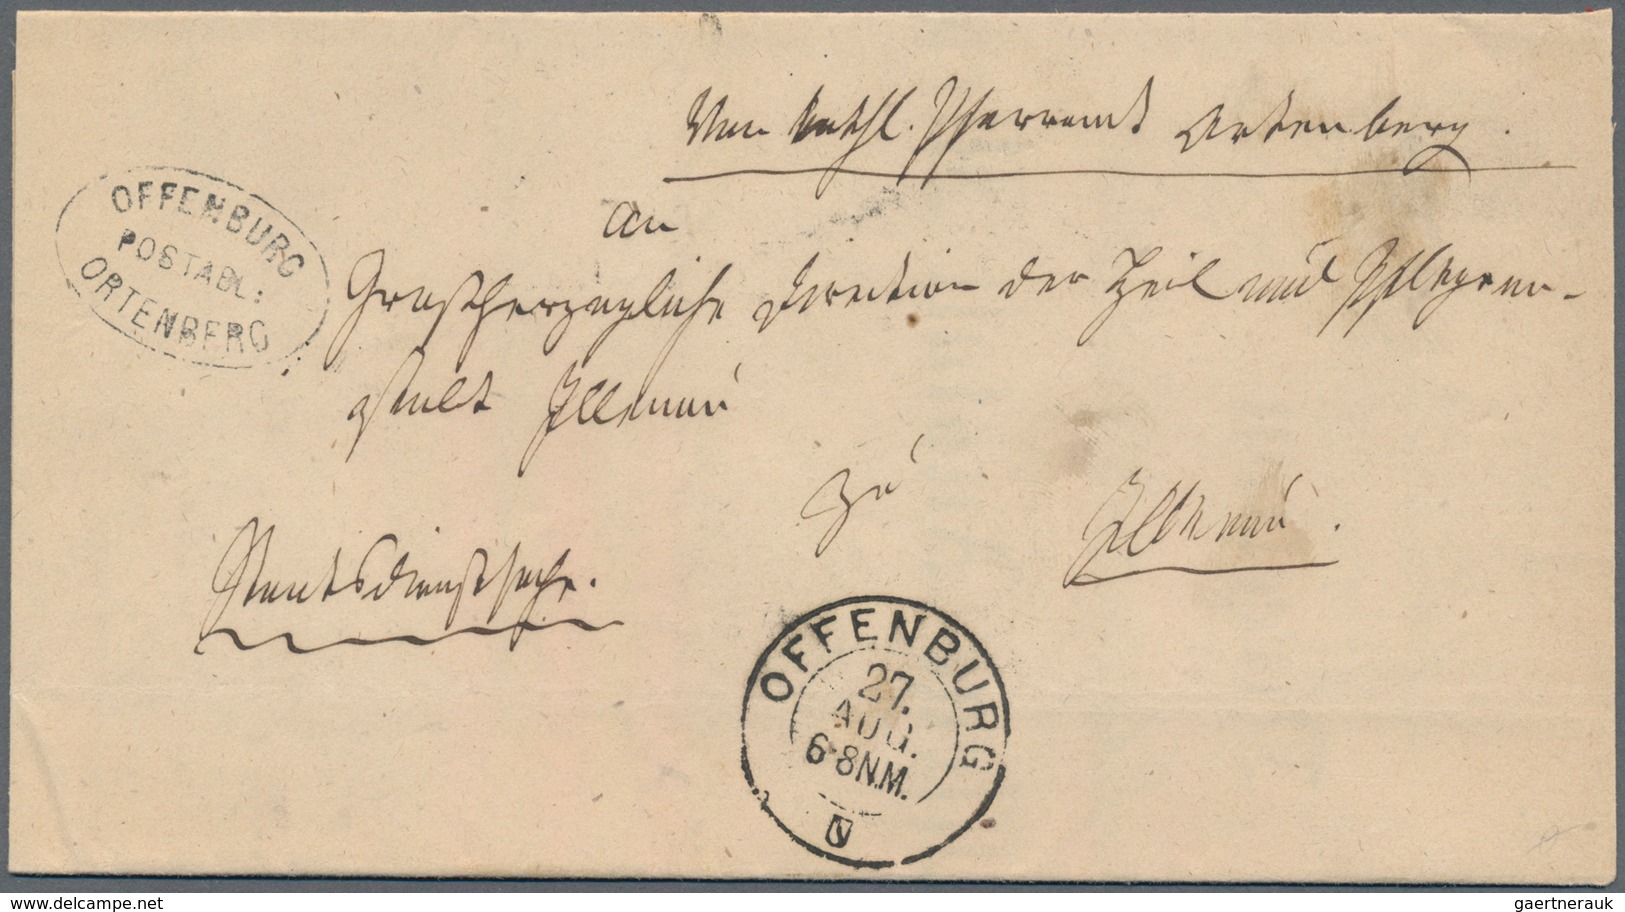 Von kathl. Pfarramt Ortenberg.
an
Großherzogliche Direction der Heil und Pflegean-
stalt Illenau
zu
Illenau.
Staatsdienstsache.
OFFENBURG
POSTABL:
ORTENBERG
OFFENBURG
27.
AUG.
6-8 N.M.
delcampe.net
gaertnerauk